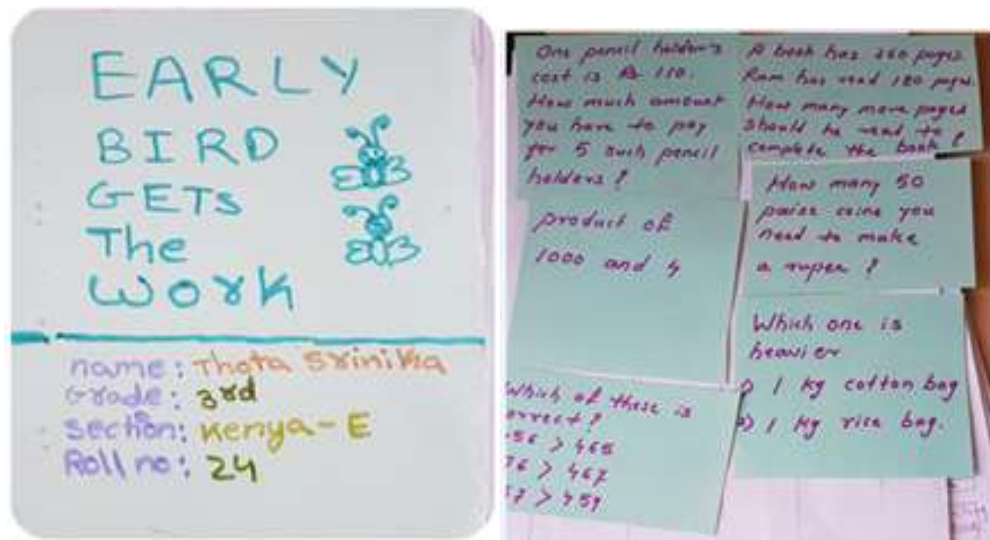 EARLY
BIRD
GETs
The
Work
name: Thota Srinika
Grade: 3rd
Section: Kenya-E
Roll no: 24
One pencil holder's
cost is Rs 110.
How much amount
you have to pay
for 5 such pencil
holders?
A book has 260 pages.
Ram has read 120 pages.
How many more pages
should he read to
complete the book?
product of
1000 and 4
How many 50
paise coins you
need to make
a rupee?
Which of these is
orrect?
56 > 465
76 > 467
57 > 459
Which one is
heavier
1 kg cotton bag
2) 1 kg rice bag.